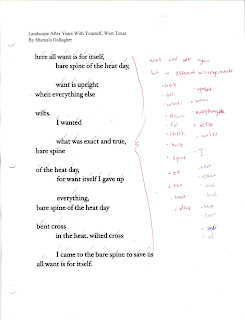 Landscape After Years With Yourself, West Texas
By Shamala Gallagher
here all want is for itself,
bare spine of the heat day,
want is upright
when everything else
wilts.
I wanted
what was exact and true,
bare spine
of the heat day,
for want itself I gave up
everything,
bare spine of the heat day
bent cross
in the heat. wilted cross
I came to the bare spine to save us
all want is for itself.
words used over again
but in different arrangements
here
all
want
is
for
itself
bare
spine
of
the
heat
day
upright
when
everything
else
wilts
I
what
exact